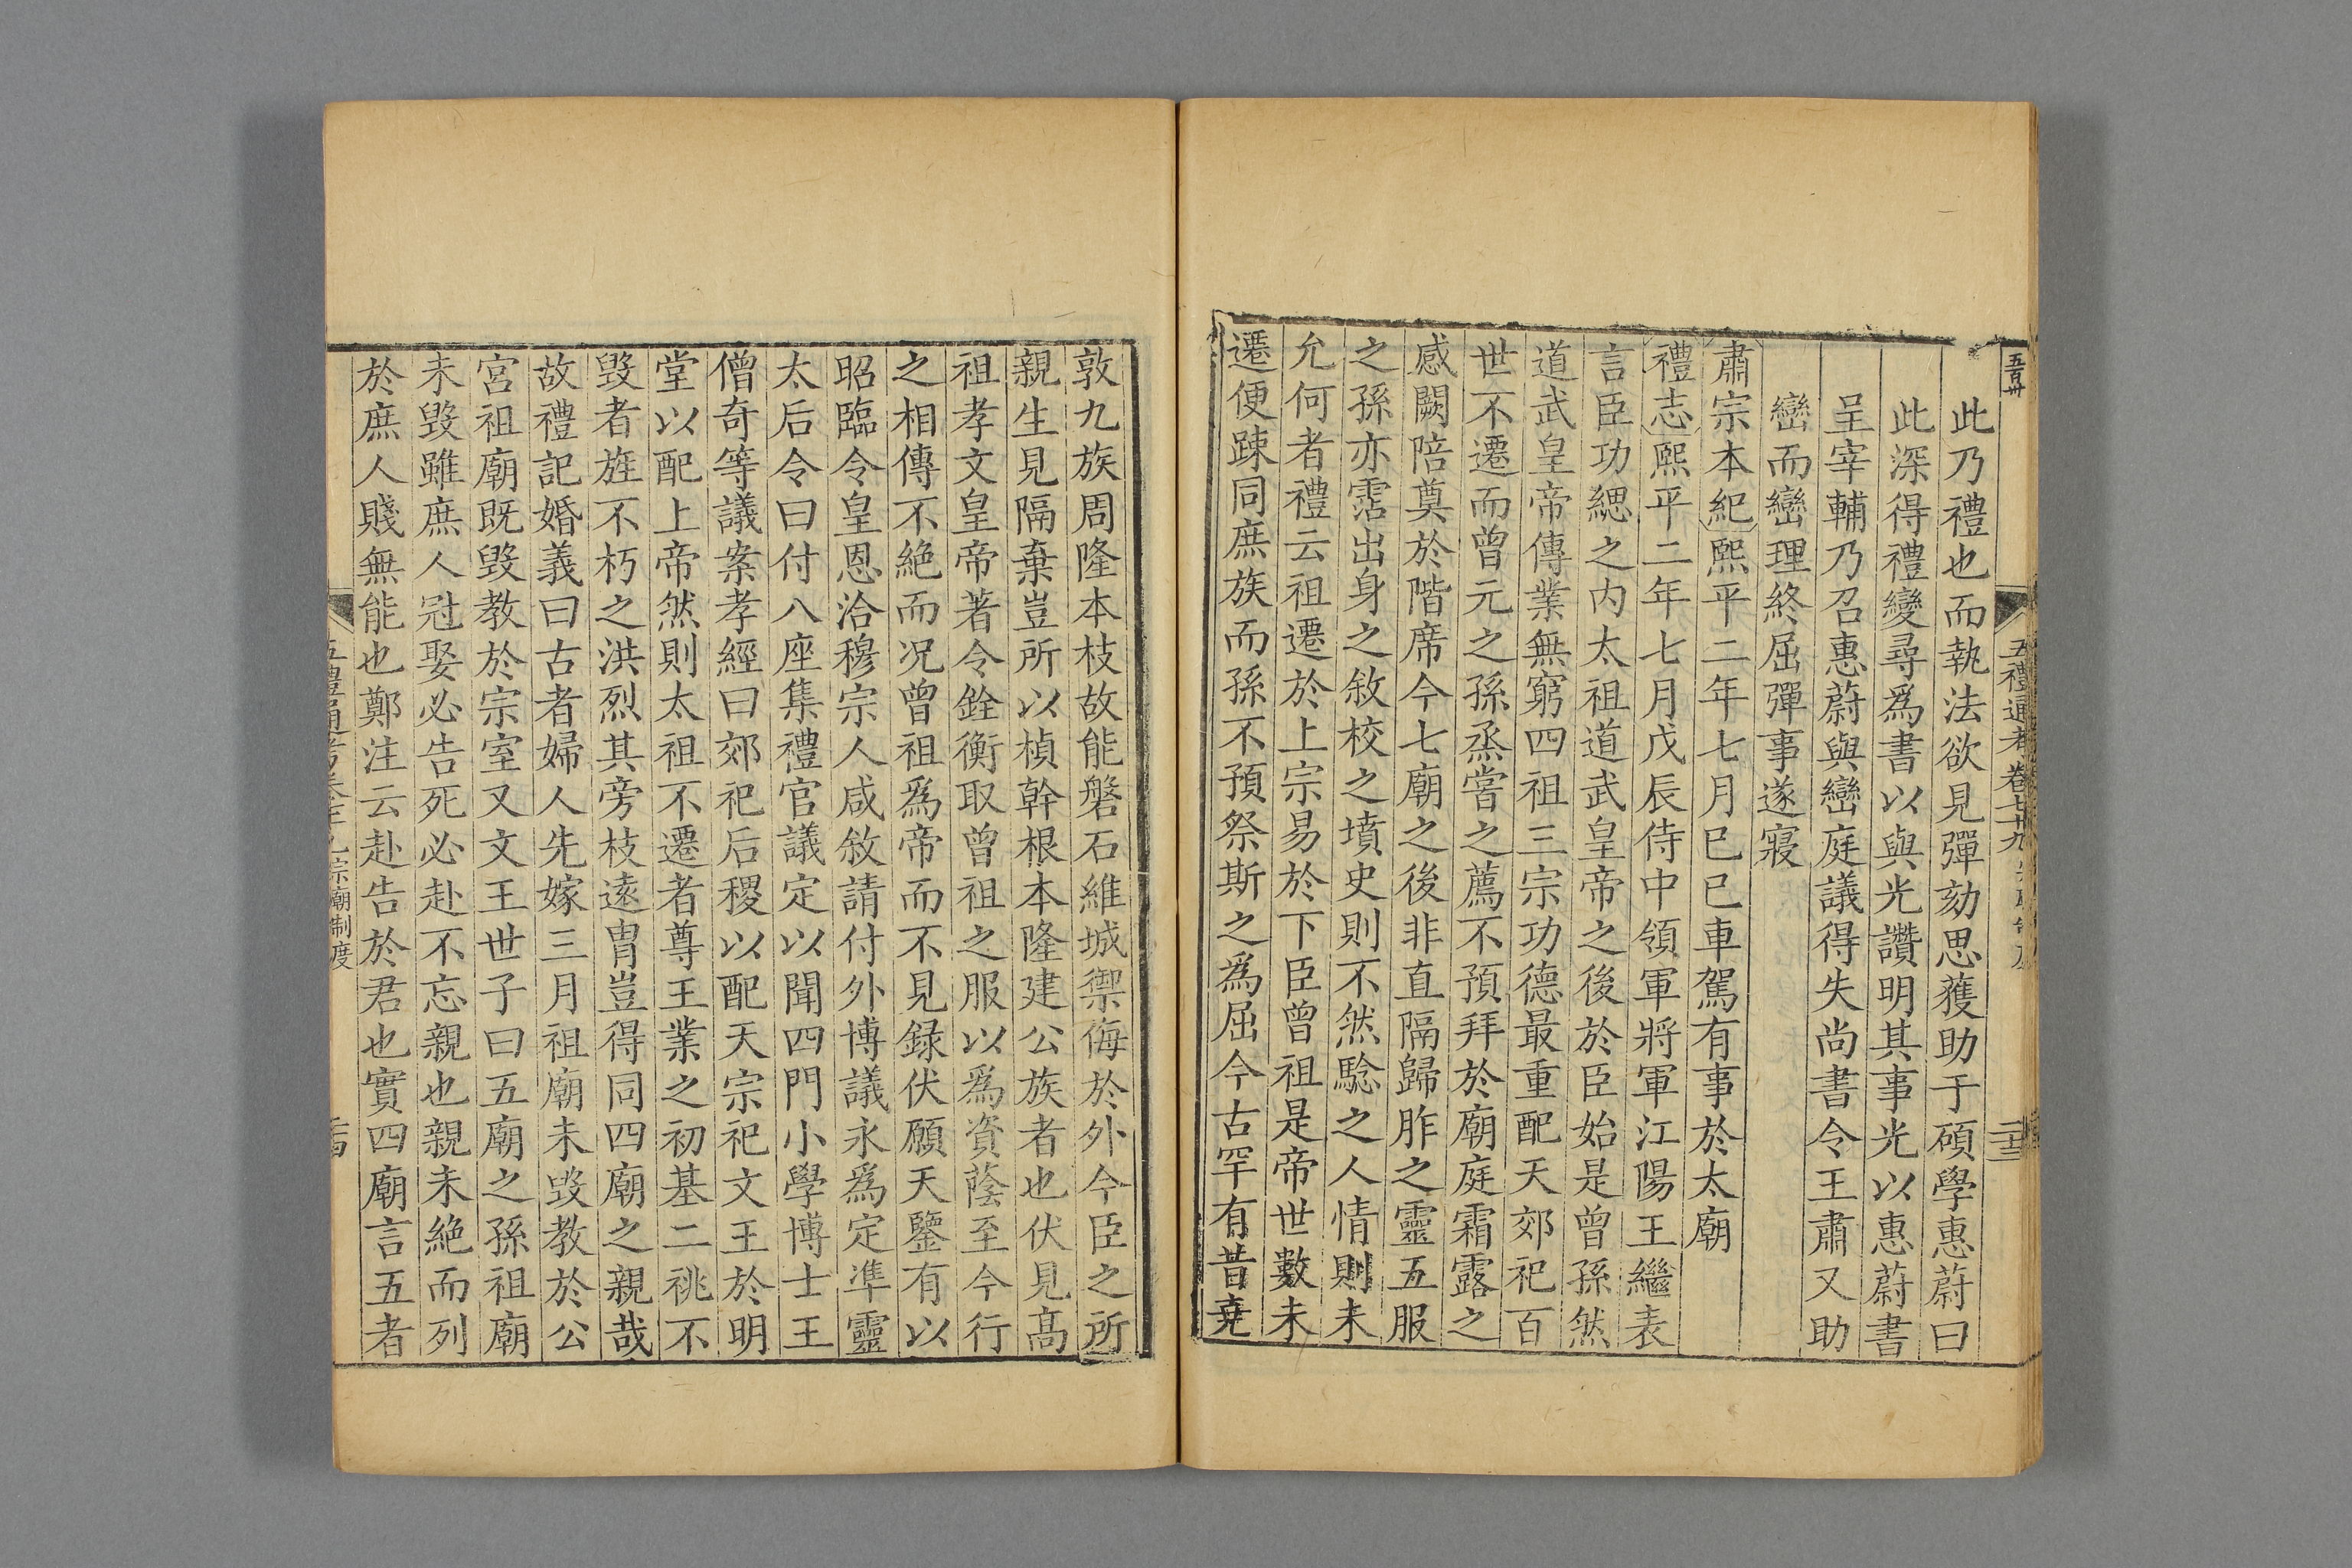 五百卅
五禮通考卷七十九
二十三
此乃禮也而執法欲見彈劾思獲助于碩學惠蔚曰
此深得禮變尋爲書以與光讚明其事光以惠蔚書
呈宰輔乃召惠蔚與巒庭議得失尚書令王肅又助
巒而巒理終屈彈事遂寢
肅宗本紀熙平二年七月已已車駕有事於太廟
禮志熙平二年七月戊辰侍中領軍將軍江陽王繼表
言臣功緦之内太祖道武皇帝之後於臣始是曾孫然
道武皇帝傳業無窮四祖三宗功德最重配天郊祀百
世不遷而曾元之孫烝嘗之薦不預拜於廟庭霜露之
感闕陪奠於階席今七廟之後非直隔歸胙之靈五服
之孫亦霑出身之敘校之墳史則不然驗之人情則未
允何者禮云祖遷於上宗易於下臣曾祖是帝世數未
遷便踈同庶族而孫不預祭斯之爲屈今古罕有昔堯
敦九族周隆本枝故能磐石維城禦侮於外今臣之所
親生見隔棄豈所以楨幹根本隆建公族者也伏見高
祖孝文皇帝著令銓衡取曾祖之服以爲資蔭至今行
之相傳不絶而况曾祖爲帝而不見録伏願天鑒有以
昭臨令皇恩洽穆宗人咸敘請付外博議永爲定準靈
太后令曰付八座集禮官議定以聞四門小學博士王
僧奇等議案孝經曰郊祀后稷以配天宗祀文王於明
堂以配上帝然則太祖不遷者尊王業之初基二祧不
毁者旌不朽之洪烈其旁枝遠胄豈得同四廟之親哉
故禮記婚義曰古者婦人先嫁三月祖廟未毁教於公
宮祖廟既毁教於宗室又文王世子曰五廟之孫祖廟
未毁雖庶人冠娶必告死必赴不忘親也親未絶而列
於庶人賤無能也鄭注云赴告於君也實四廟言五者
宗廟制度